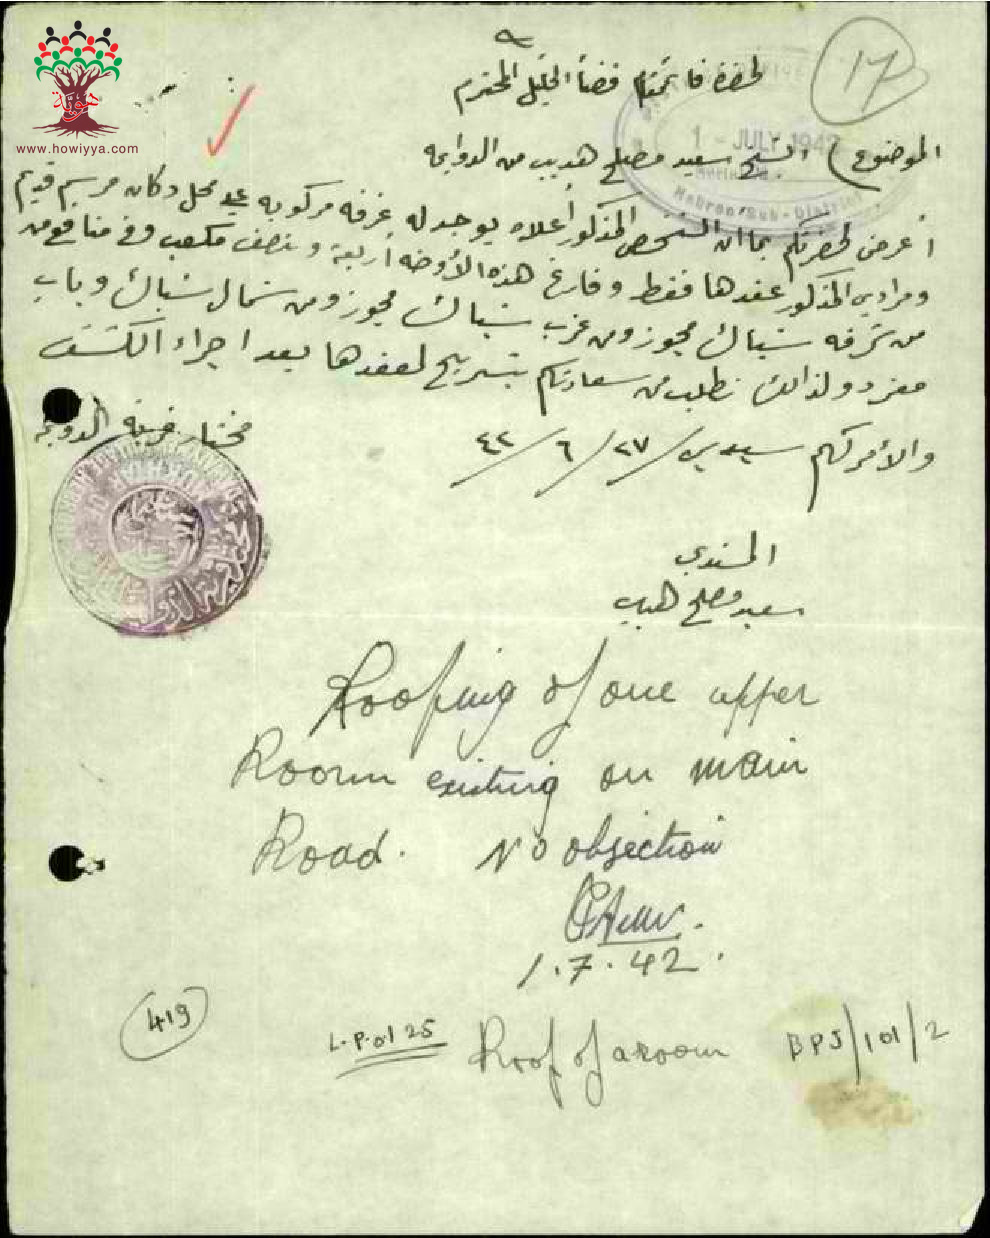 هوية
www.howiyya.com
17
لحضرة قائمقام قضأ الخليل المحترم
1 - JULY 1942
Hebron Sub-District
الموضوع) الشيخ سعيد مصلح هديب من الدوايمه
أعرض لحضرتكم بما ان الشخص المذكور أعلاه يوجد له غرفه مركوبه على محل دكان مرسم قديم
ومرادي المذكور عقدها فقط وفارغ هذه الأوضه أربعة ونصف مكعب وفي منافع من
من شرقه شباك مجوز ومن غرب شباك مجوز ومن شمال شباك وباب
مفرد ولذالك نطلب من سعادتكم بتسريح لعقدها بعد اجراء الكشف
والأمر لكم سيدي ٢٧/٦/٤٢
مختار قرية الدوايمه
المستدعي
سعيد مصلح هديب
Roofing of one upper
Room existing on main
Road. No objection
1.7.42.
419
L.P. 01 25
Roof of a room
BPS/101/2